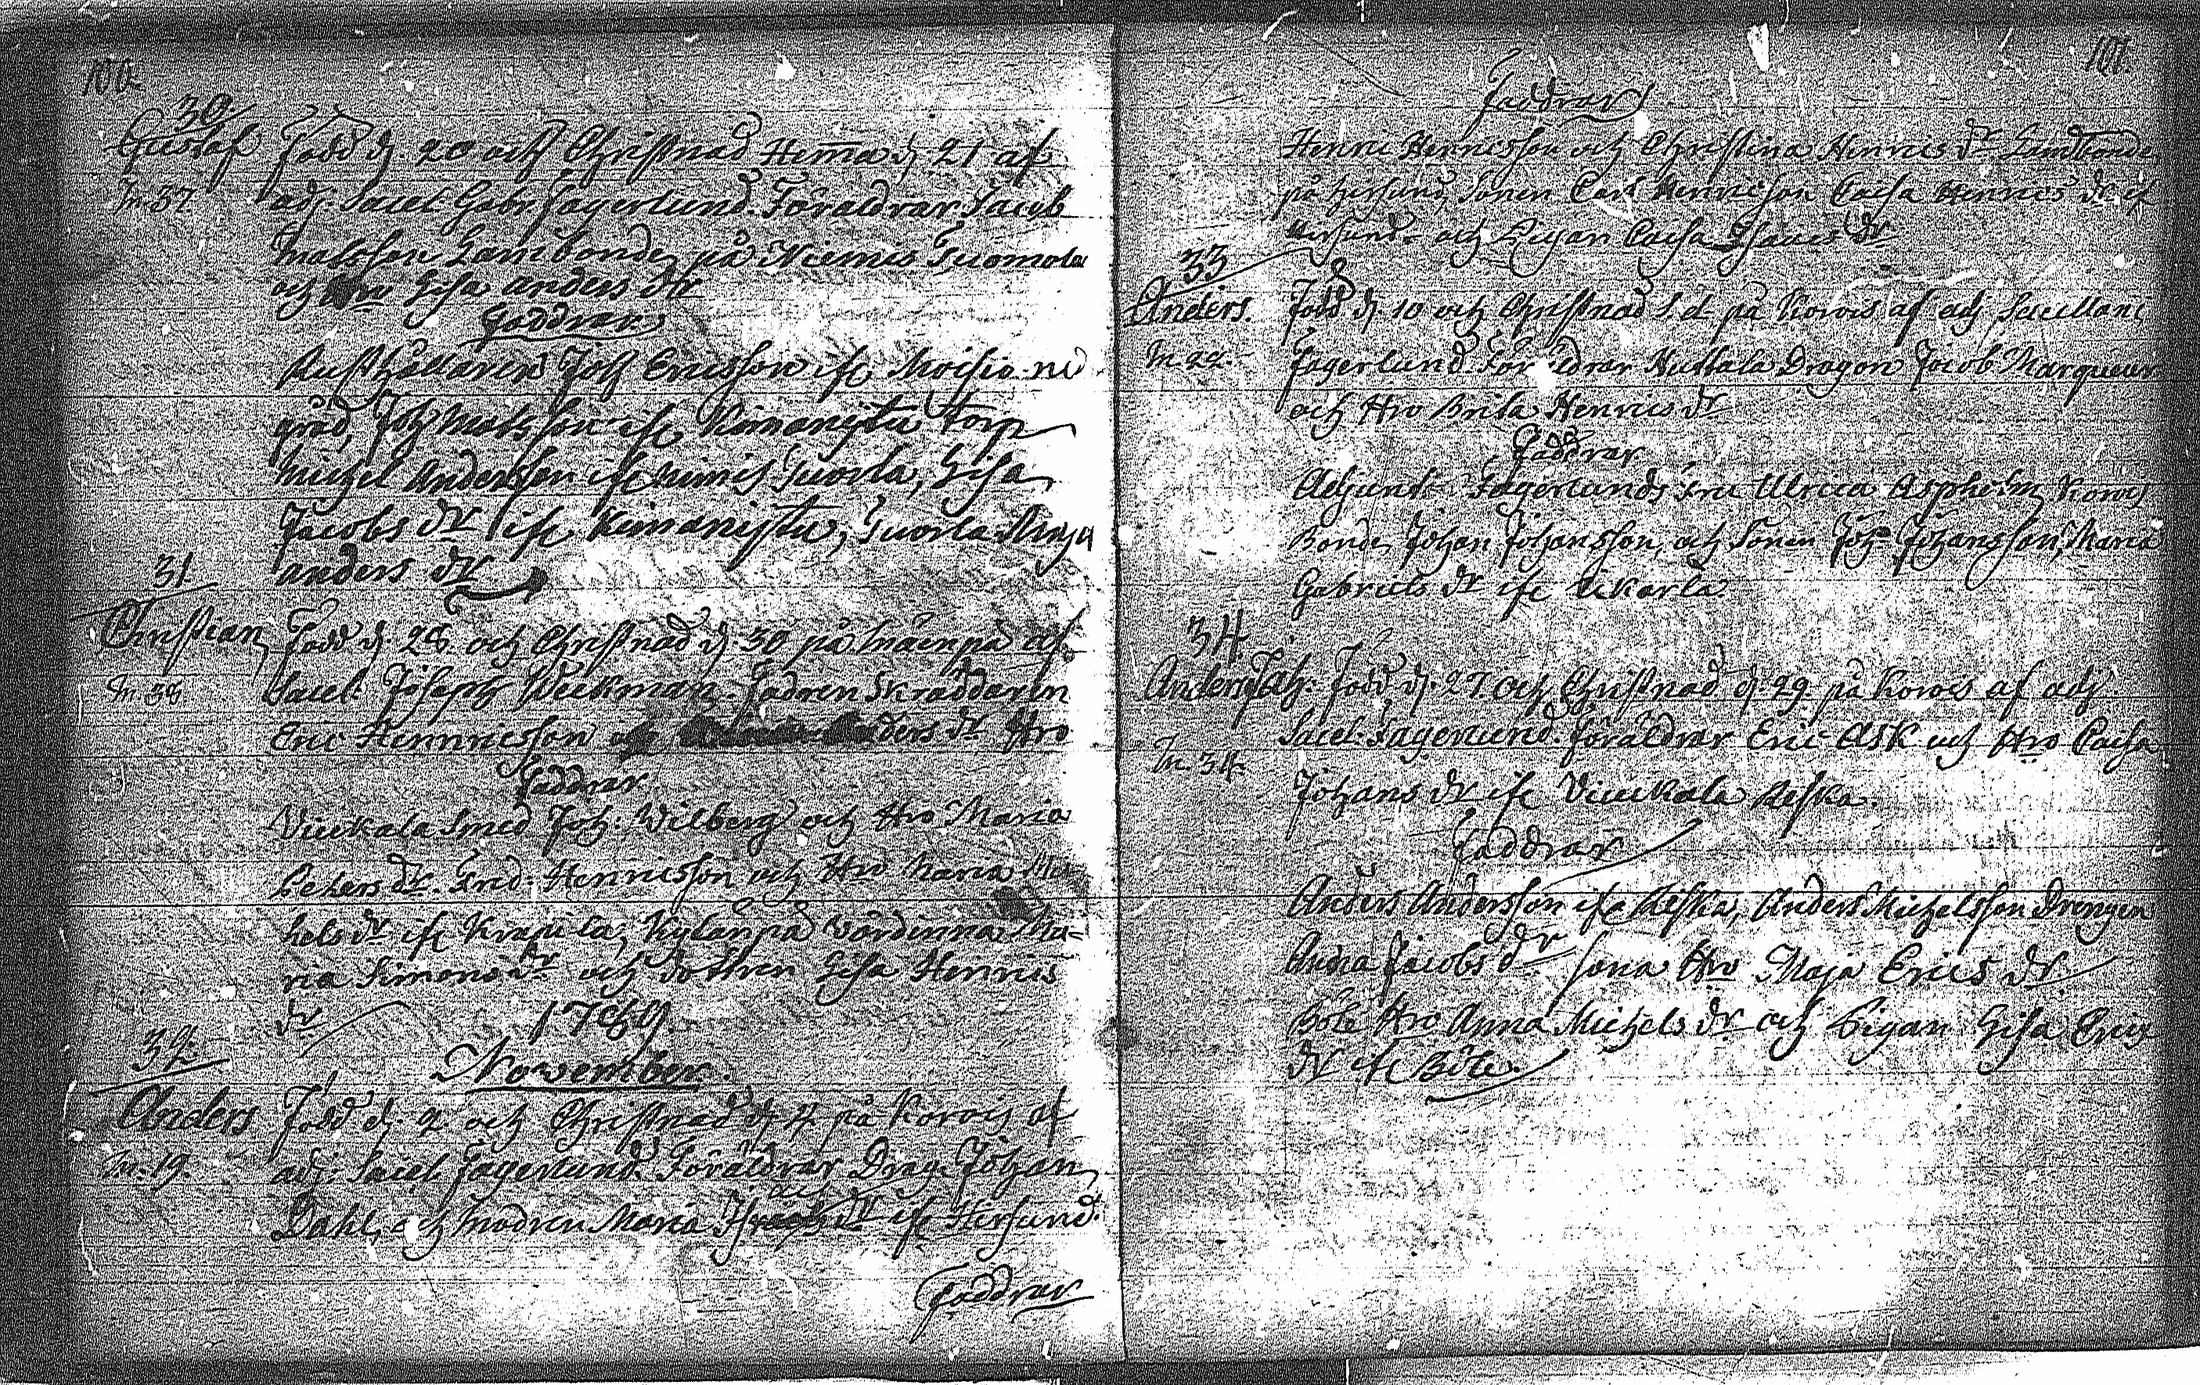 100.
30
Gustaf Född d. 20 och Christnad Hemma d. 21 af
M. 37. adj. Sacel. Gabr. Fagerlund. Föräldrar Jacob
Matsson Landbonde på Niemis Tuomola
och Hro Lisa Anders dr
Faddrar
Rusthållaren Joh Ericsson ifr Moisio ned
gård, Joh Matsson ifr Kimanijtu torp
Michel Andersson ifr Nimis Tuorla, Lisa
Jacobs dr ifr Kimanijtu, Tuorla
Anders dr
31
Christian Född d. 28 och Christnad d. 30 på Mäenpä af
M. 38 Sacel. Joseph Weckman. Fadren Skräddaren
Eric Hennricsson Anders dr Hro
Faddrar
Viuckala Smed Joh. Vilberg och Hro Maria
Peders dr. Frid. Henricsson och Hro Maria Mi
hels dr ifr Krapila, Kylänpä Värdinna Ma=
ria Simons dr och dottren Lisa Henrics
dr
1789.
November.
32
Anders Född d. 2 och Christnad d. 4 på Korois af
M. 19. adj: Sacel Fagerlund. Föräldrar Drag. Johan
Dahl, och modren Maria dr ifr Hirsund.
Faddrar
101.
Faddrar
Henric Henricsson och Christina Henrics dr Landbonde
på Hirsund, Sonen Carl Henricsson Caisa Henrics dr if
Hirsund. och Pigan Caisa dr
33
Anders. Född d. 10 och Christnad S. d. på Korois af adj Sacellani
M. 22. Fagerlund. Föräldrar Huttala Dragon Jacob Marqueur
och Hro Brita Henrics dr
Faddrar
Adjunct Fagerlunds Fru Ulrica Aspholm, Korois
Bonde, Johan Johansson, och Sonen Joh. Johansson, Maria
Gabriels dr ifr Uikarla.
34.
Anders Joh. Född d. 27. och Christnad d. 29 på Korois af adj
M. 34. Sacel. Fagerlund. föräldrar Eric Ask och Hro Caisa
Johans dr ifr Viuckala Reska.
Faddrar
Anders Andersson ifr Reska, Anders Michelsson Drengen
Anna Jacobs dr Hro Maja Erics dr.
Böle Hro Anna Michels dr och Pigan Lisa Erix
dr ifr Böle.